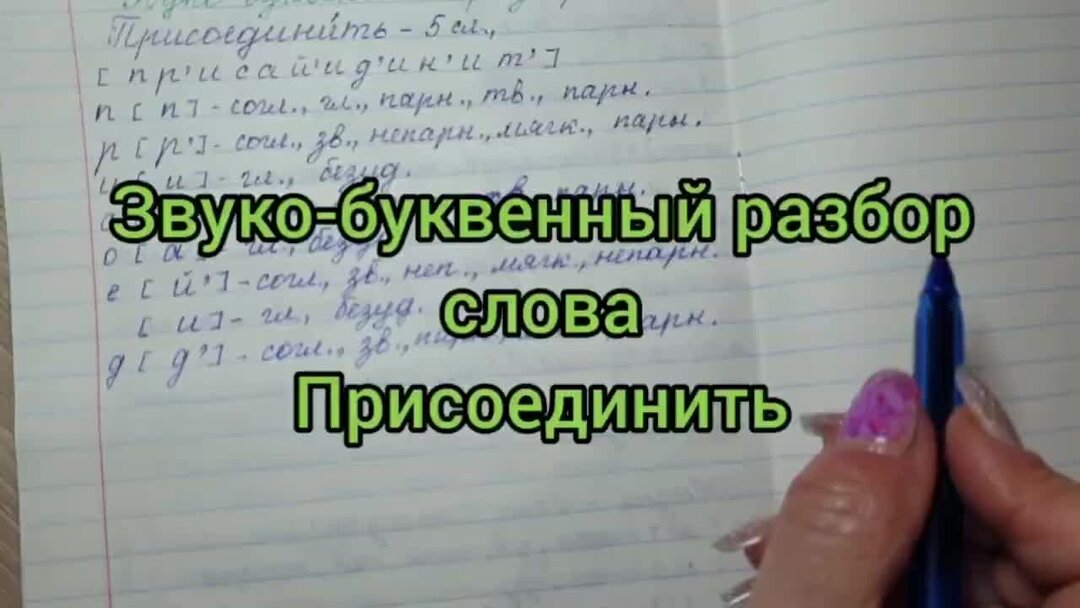 Присоедини́ть - 5 сл.,
[ п р' и с а й' и д' и н' и т' ]
п [ п ] - согл., гл., парн., тв., парн.
р [ р' ] - согл., зв., непарн., мягк., парн.
и [ и ] - гл., безуд.
Звуко-буквенный разбор
о [ а ] - гл., безуд.
е [ й' ] - согл., зв., неп., мягк., непарн.
слова
[ и ] - гл, безуд.
д [ д' ] - согл., зв., парн.
Присоединить